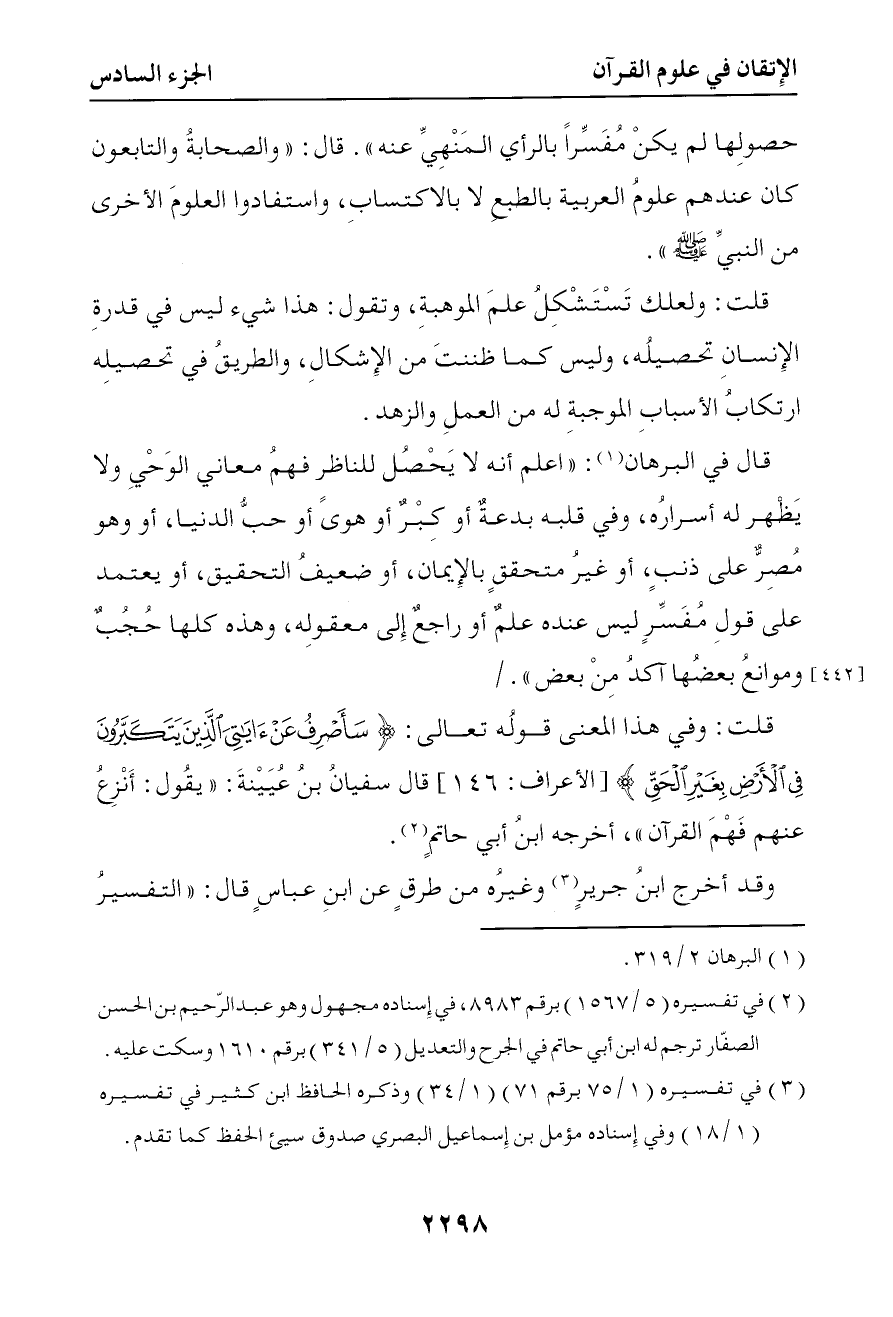 الإتقان في علوم القرآن الجزء السادس
حصولِها لم يكنْ مُفَسِّراً بالرأي المَنْهِيِّ عنه». قال: «والصحابةُ والتابعون
كان عندهم علومُ العربية بالطبعِ لا بالاكتسابِ، واستفادوا العلومَ الأخرى
من النبيِّ ﷺ».
قلت: ولعلك تَسْتَشْكِلُ علمَ الموهبة، وتقول: هذا شيء ليس في قدرةِ
الإنسانِ تحصيلُه، وليس كما ظننتَ من الإشكال، والطريقُ في تحصيلِه
ارتكابُ الأسبابِ الموجبةِ له من العملِ والزهد.
قال في البرهان(١): «اعلم أنه لا يَحْصُل للناظر فهمُ معاني الوَحْيِ ولا
يَظْهر له أسرارُه، وفي قلبه بدعةٌ أو كِبْرٌ أو هوىً أو حبُّ الدنيا، أو وهو
مُصِرٌّ على ذنبٍ، أو غيرُ متحققٍ بالإيمان، أو ضعيفُ التحقيق، أو يعتمد
على قولِ مُفَسِّرٍ ليس عنده علمٌ أو راجعٌ إلى معقوله، وهذه كلها حُجُبٌ
وموانعُ بعضُها آكدُ مِنْ بعض». / [٤٤٢]
قلت: وفي هذا المعنى قولُه تعالى: ﴿سَأَصْرِفُ عَنْ ءَايَٰتِيَ ٱلَّذِينَ يَتَكَبَّرُونَ
فِي ٱلْأَرْضِ بِغَيْرِ ٱلْحَقِّ﴾ [الأعراف: ١٤٦] قال سفيانُ بنُ عُيَيْنةَ: «يقُول: أَنْزِعُ
عنهم فَهْمَ القرآن»، أخرجه ابنُ أبي حاتمٍ(٢).
وقد أخرج ابنُ جريرٍ(٣) وغيرُه من طرقٍ عن ابنِ عباسٍ قال: «التفسيرُ
(١) البرهان ٢/ ٣١٩.
(٢) في تفسيره (٥/ ١٥٦٧) برقم ٨٩٨٣، في إسناده مجهول وهو عبدالرّحيم بن الحسن
الصفّار ترجم له ابن أبي حاتم في الجرح والتعديل (٥/ ٣٤١) برقم ١٦١٠ وسكت عليه.
(٣) في تفسيره (١/ ٧٥ برقم ٧١) (١/ ٣٤) وذكره الحافظ ابن كثير في تفسيره
(١/ ١٨) وفي إسناده مؤمل بن إسماعيل البصري صدوق سيئ الحفظ كما تقدم.
٢٢٩٨